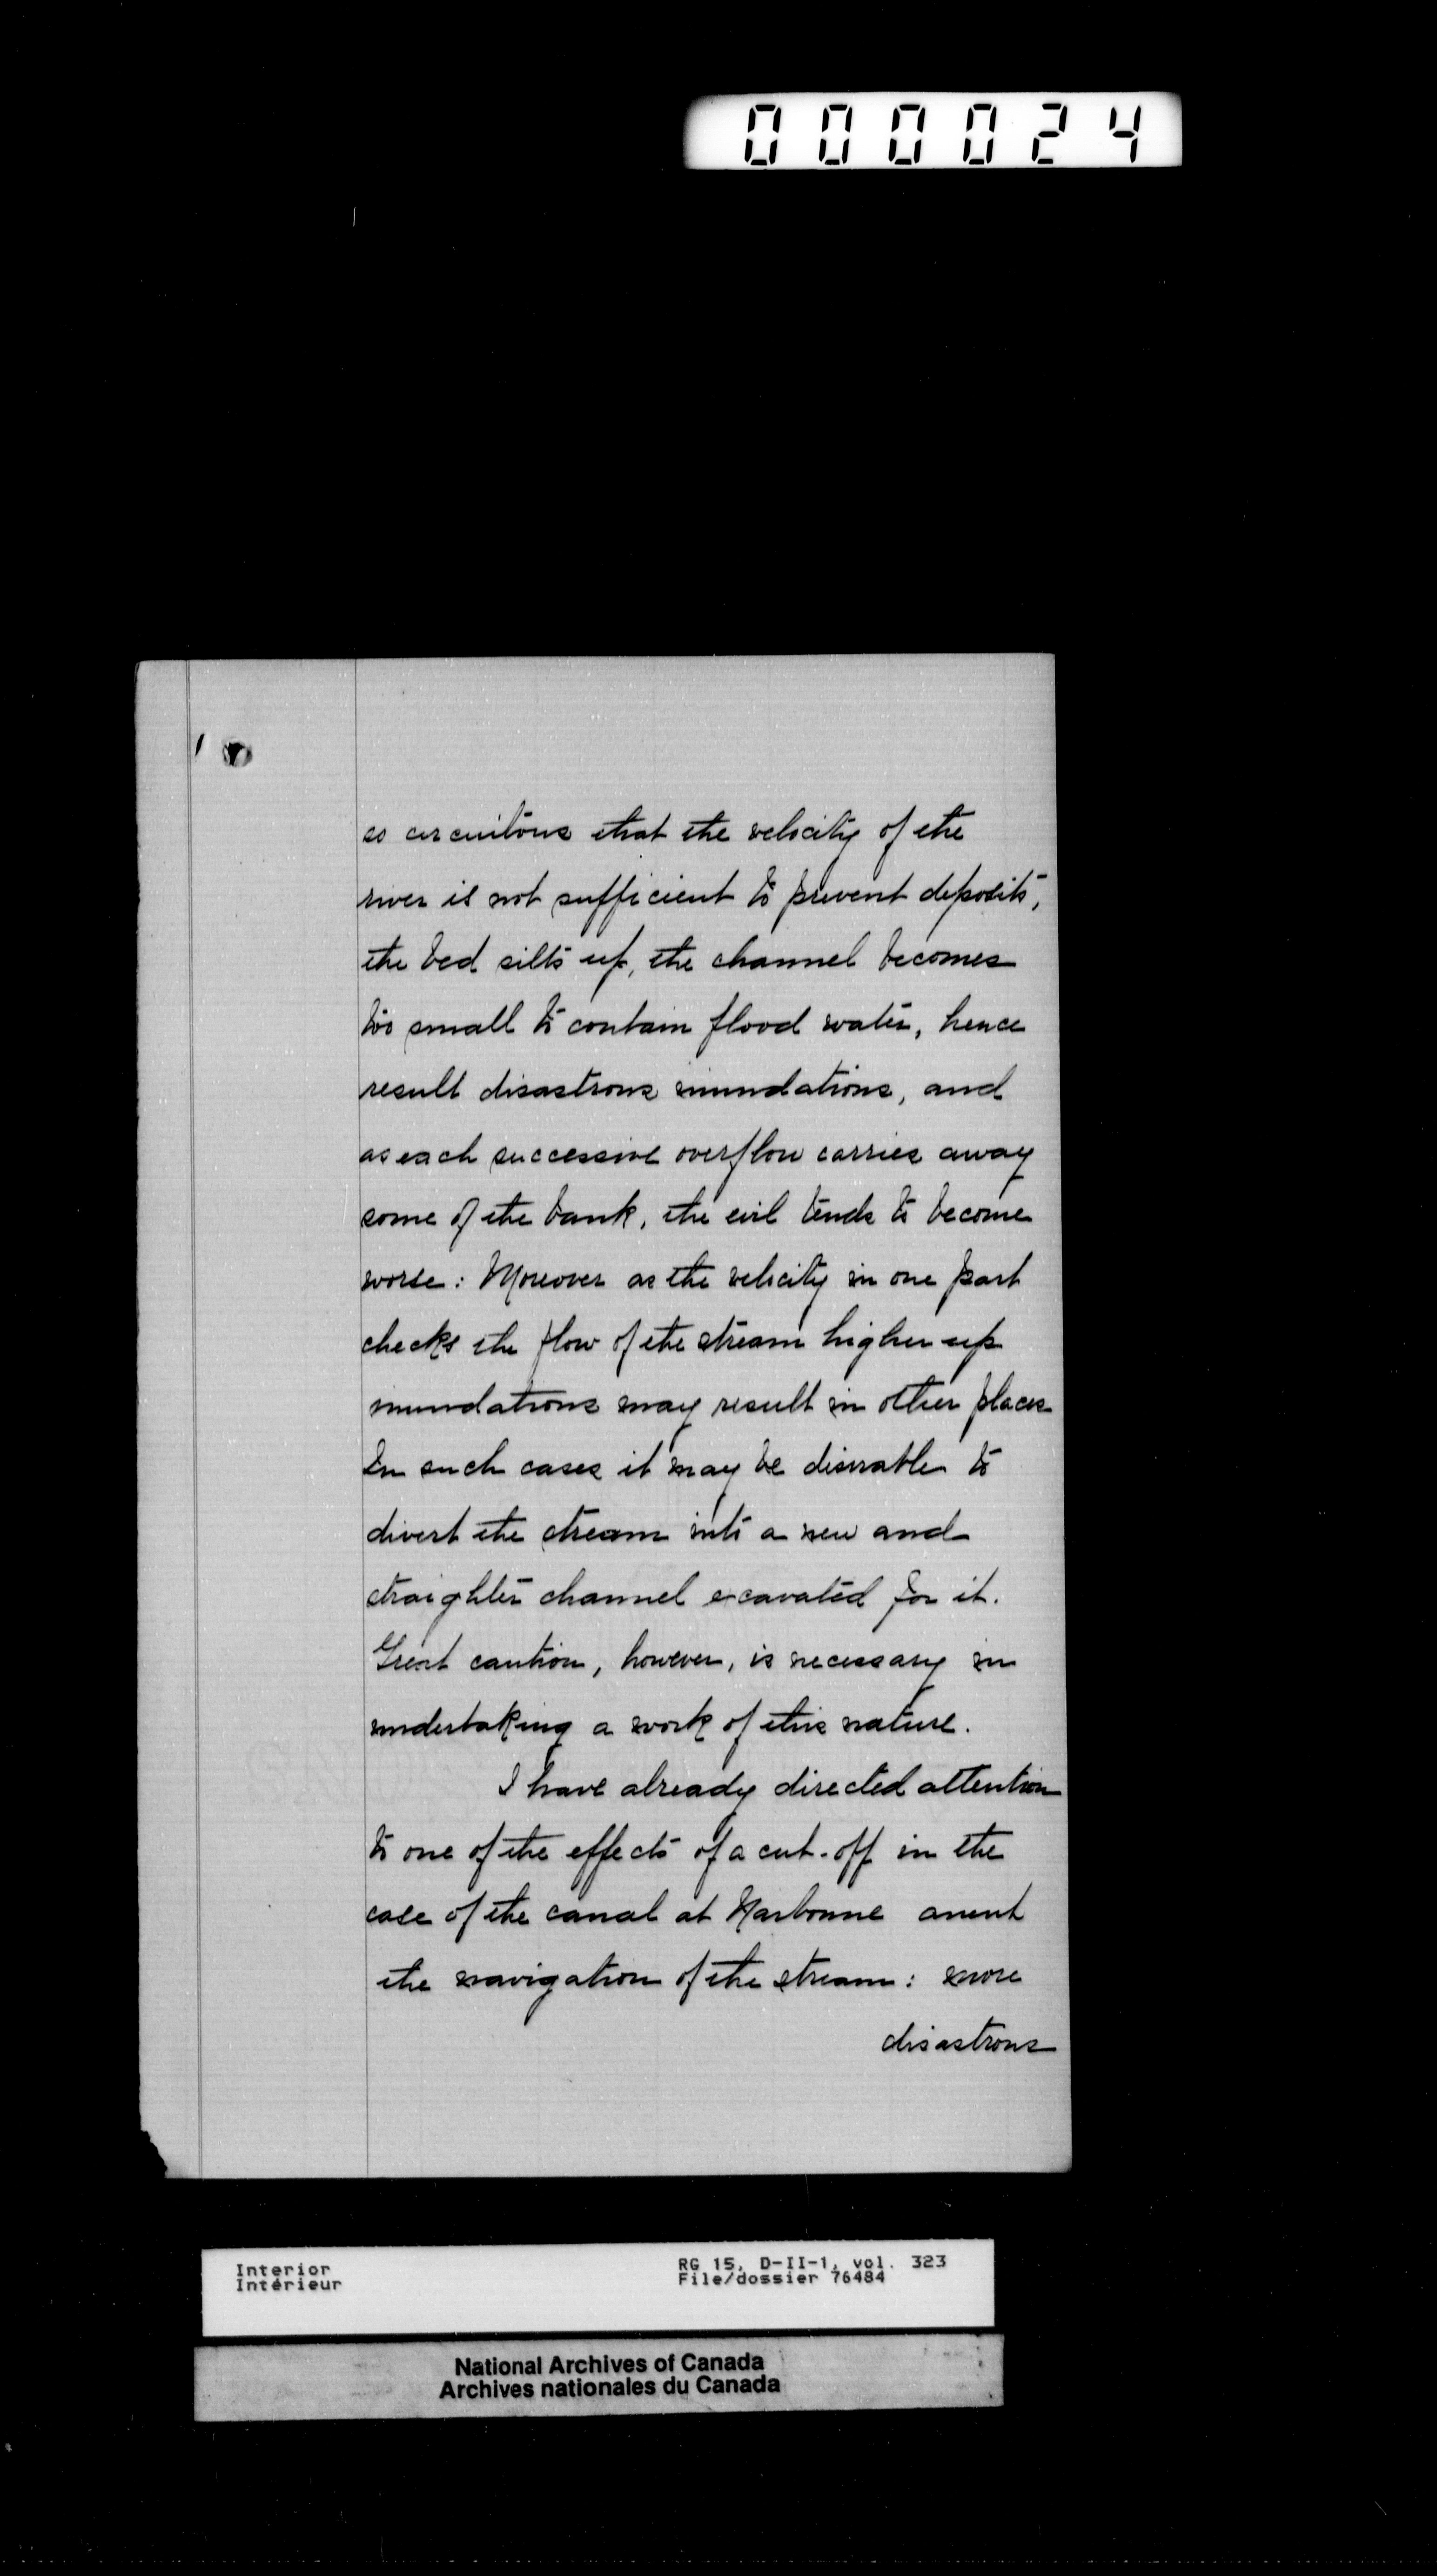 000024
so circuitous that the velocity of the
river is not sufficient to prevent deposits,
the bed silts up, the channel becomes
too small to contain flood water, hence
result disastrous inundations, and
as each successive overflow carries away
some of the bank, the evil tends to become
worse: Moreover as the velocity in one part
checks the flow of the stream higher up
inundations may result in other places
In such cases it may be desirable to
divert the stream into a new and
straighter channel excavated for it.
Great caution, however, is necessary in
undertaking a work of this nature.
I have already directed attention
to one of the effects of a cut-off in the
case of the canal at Narbonne anent
the navigation of the stream: more
disastrous
Interior RG 15, D-II-1, vol. 323
Intérieur File/dossier 76484
National Archives of Canada
Archives nationales du Canada